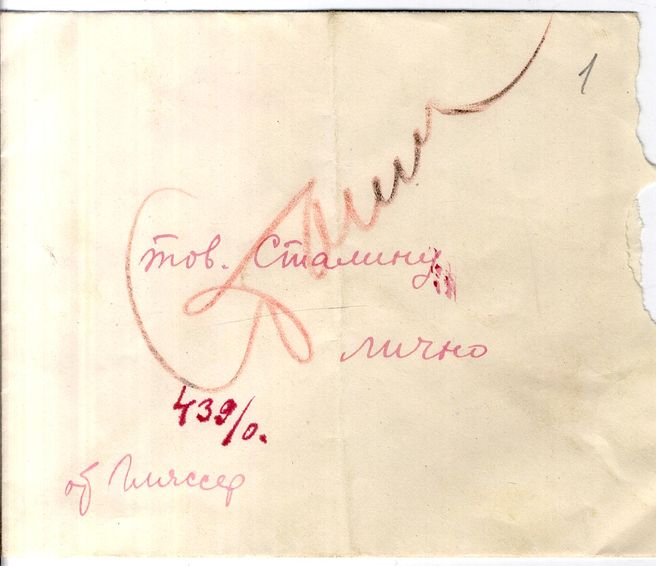 1
тов. Сталину
лично
439/о.
об Гляссер